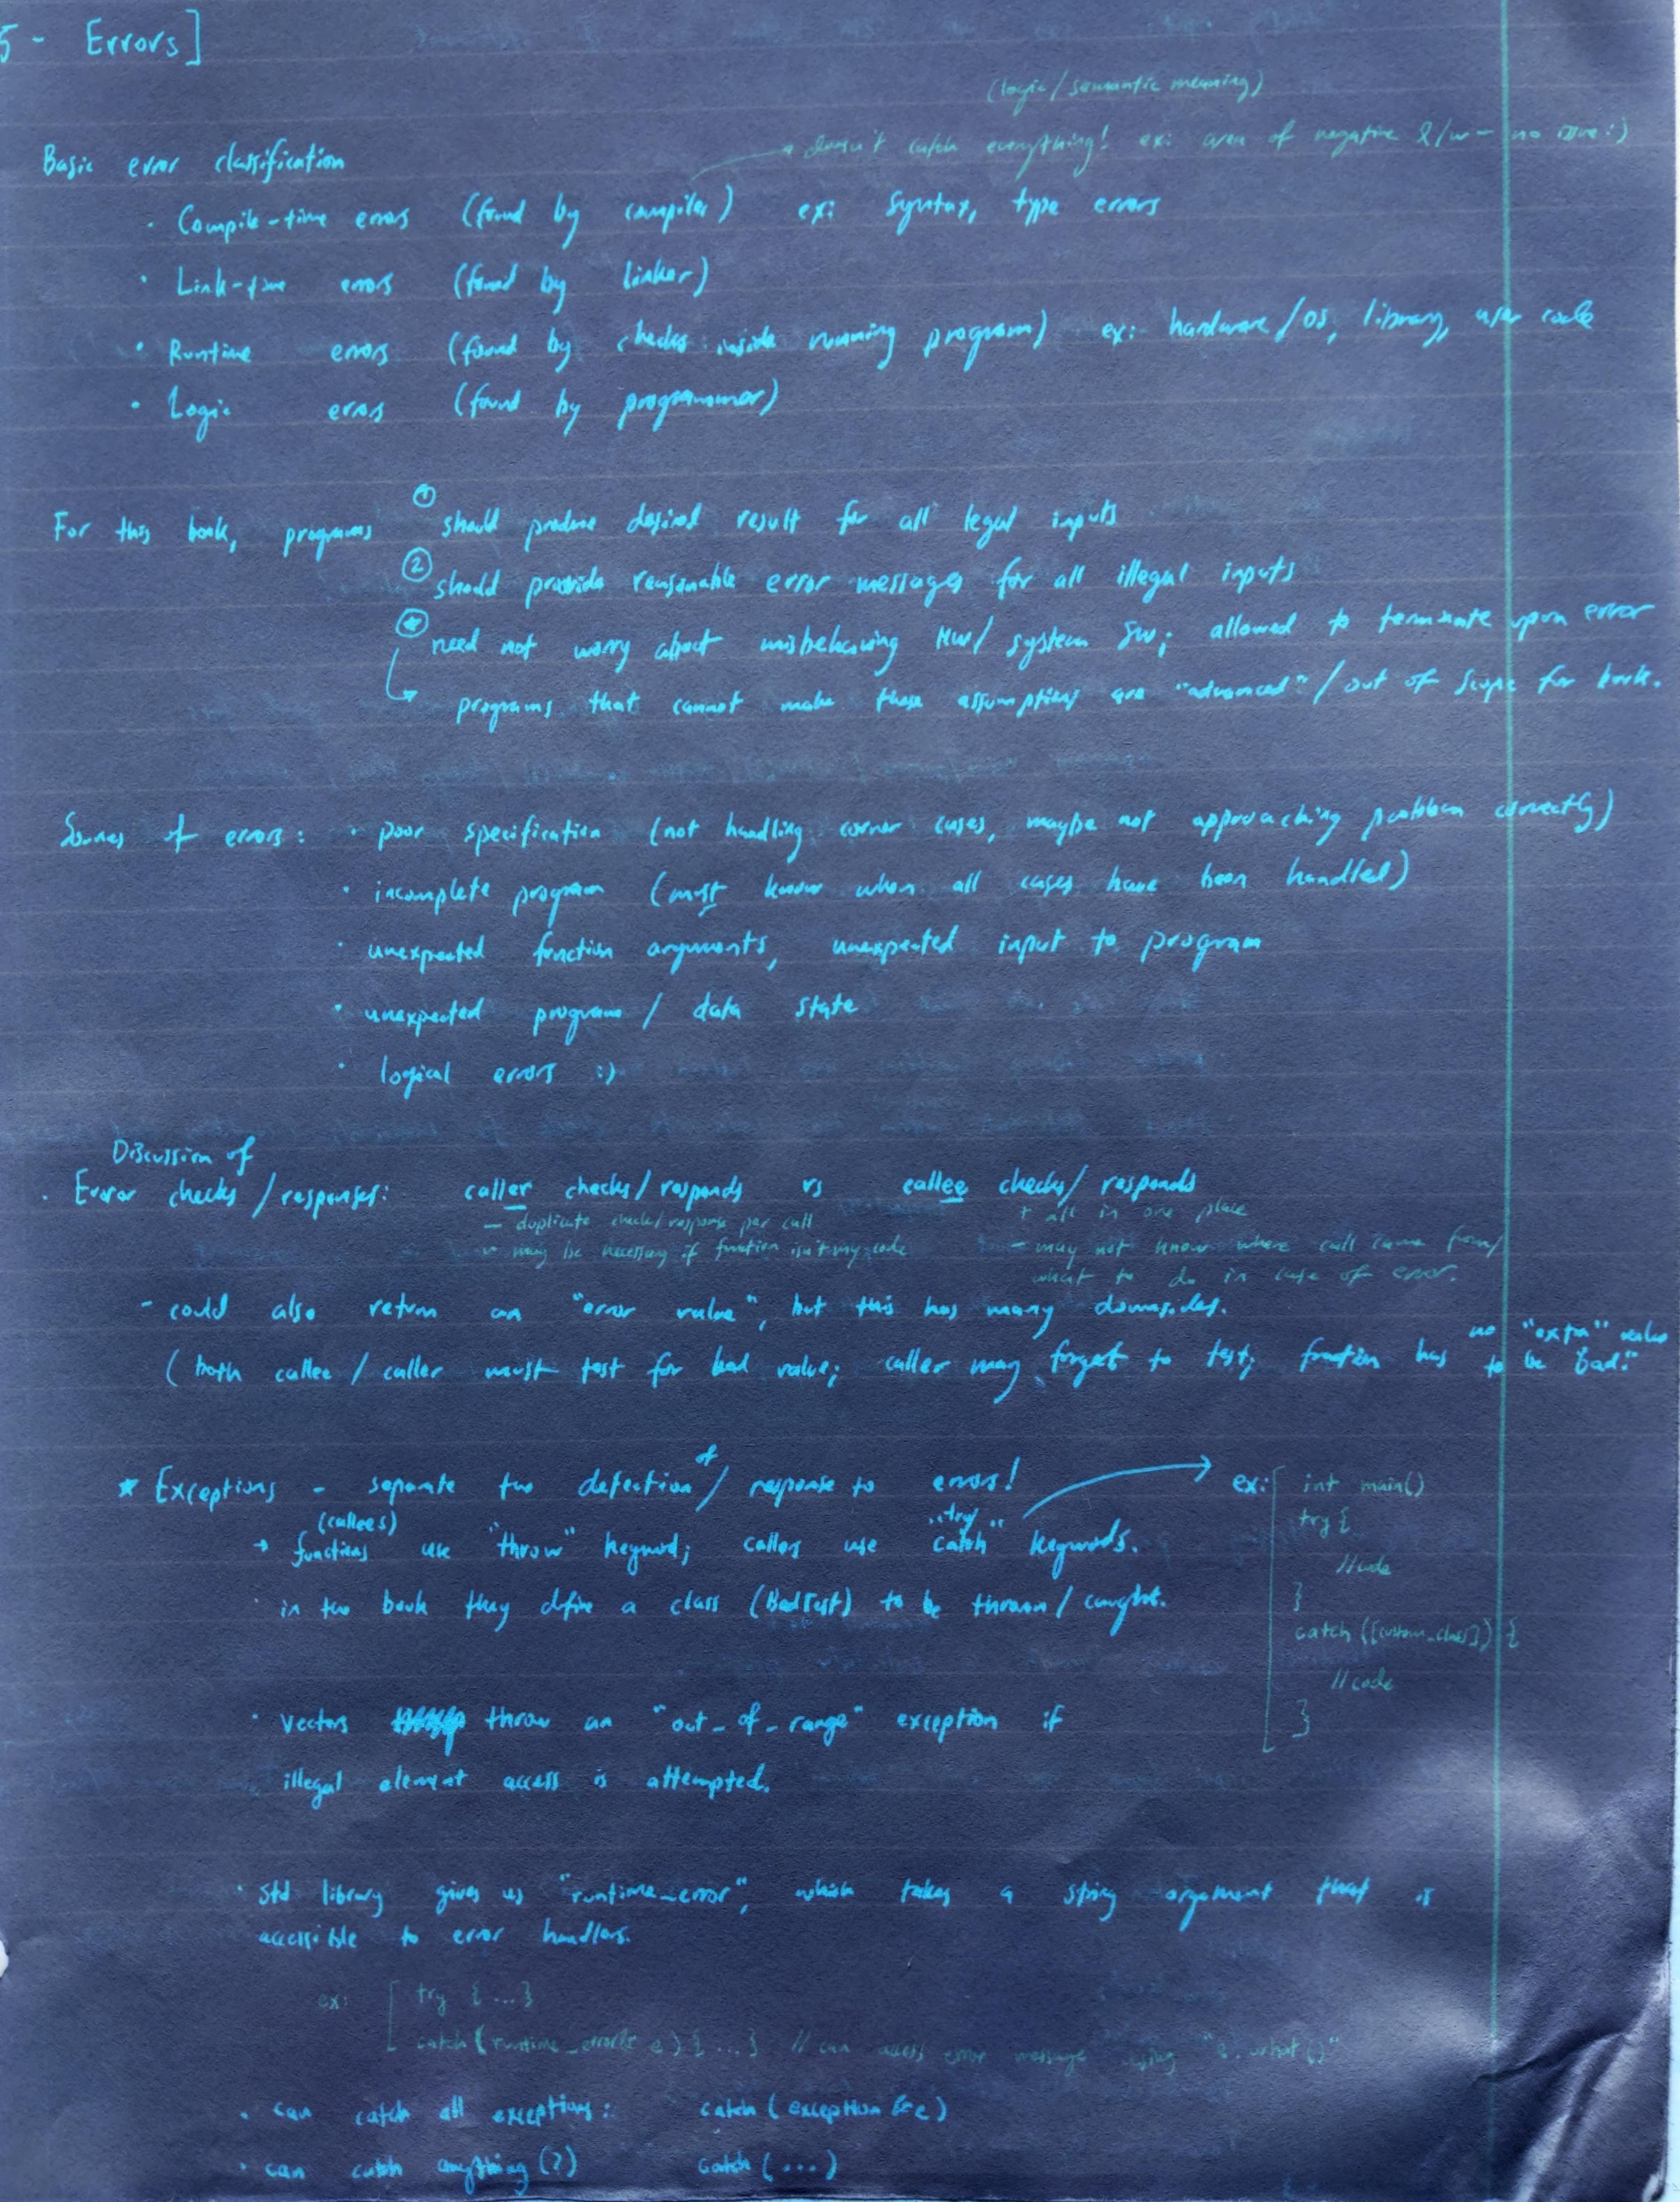 5 - Errors]
(logic/semantic meaning)
→ doesn't catch everything! ex: area of negative l/w - no issue :)
Basic error classification
· Compile-time errors (found by compiler) ex: syntax, type errors
· Link-time errors (found by linker)
· Runtime errors (found by checks inside running program) ex: hardware/OS, library, user code
· Logic errors (found by programmer)
For this book, programs ① should produce desired result for all legal inputs
② should provide reasonable error messages for all illegal inputs
need not worry about misbehaving HW/ system SW; allowed to terminate upon error
↳ programs that cannot make these assumptions are "advanced"/out of scope for book.
Sources of errors: · poor specification (not handling corner cases, maybe not approaching problem correctly)
· incomplete program (must know when all cases have been handled)
· unexpected function arguments, unexpected input to program
· unexpected program / data state
· logical errors :)
Discussion of
· Error checks/responses: caller checks/responds vs callee checks/responds
- duplicate check/response per call + all in one place
~ may be necessary if function isn't my code - may not know where call came from/
what to do in case of error.
- could also return an "error value", but this has many downsides.
(both callee / caller must test for bad value; caller may forget to test; function has no "extra" value to be "bad."
* Exceptions - separate the detection of / response to errors!
→ functions (callees) use "throw" keyword; callers use "try catch" keywords.
· in the book they define a class (BadTest) to be thrown/caught.
ex: int main()
try {
//code
}
catch ([custom_class]) {
//code
}
· vectors throw an "out_of_range" exception if
illegal element access is attempted.
· std library gives us "runtime_error", which takes a string argument that is
accessible to error handlers.
ex: try {...}
catch (runtime_error& e) {...} // can access error message using "e.what()"
· can catch all exceptions: catch (exception &e)
· can catch anything (?) catch (...)